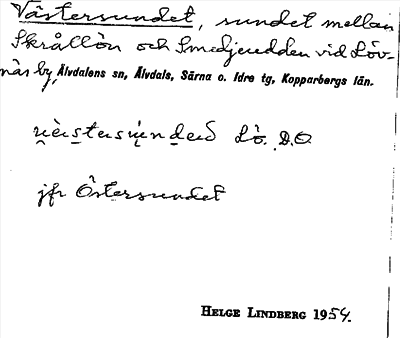 Västersundet, sundet mellan
Skrållön och Smedjeudden vid Löv-
näs by, Älvdalens sn, Älvdals, Särna o. Idre tg, Kopparbergs län.
Lö. D.O
jfr Östersundet
HELGE LINDBERG 1954.